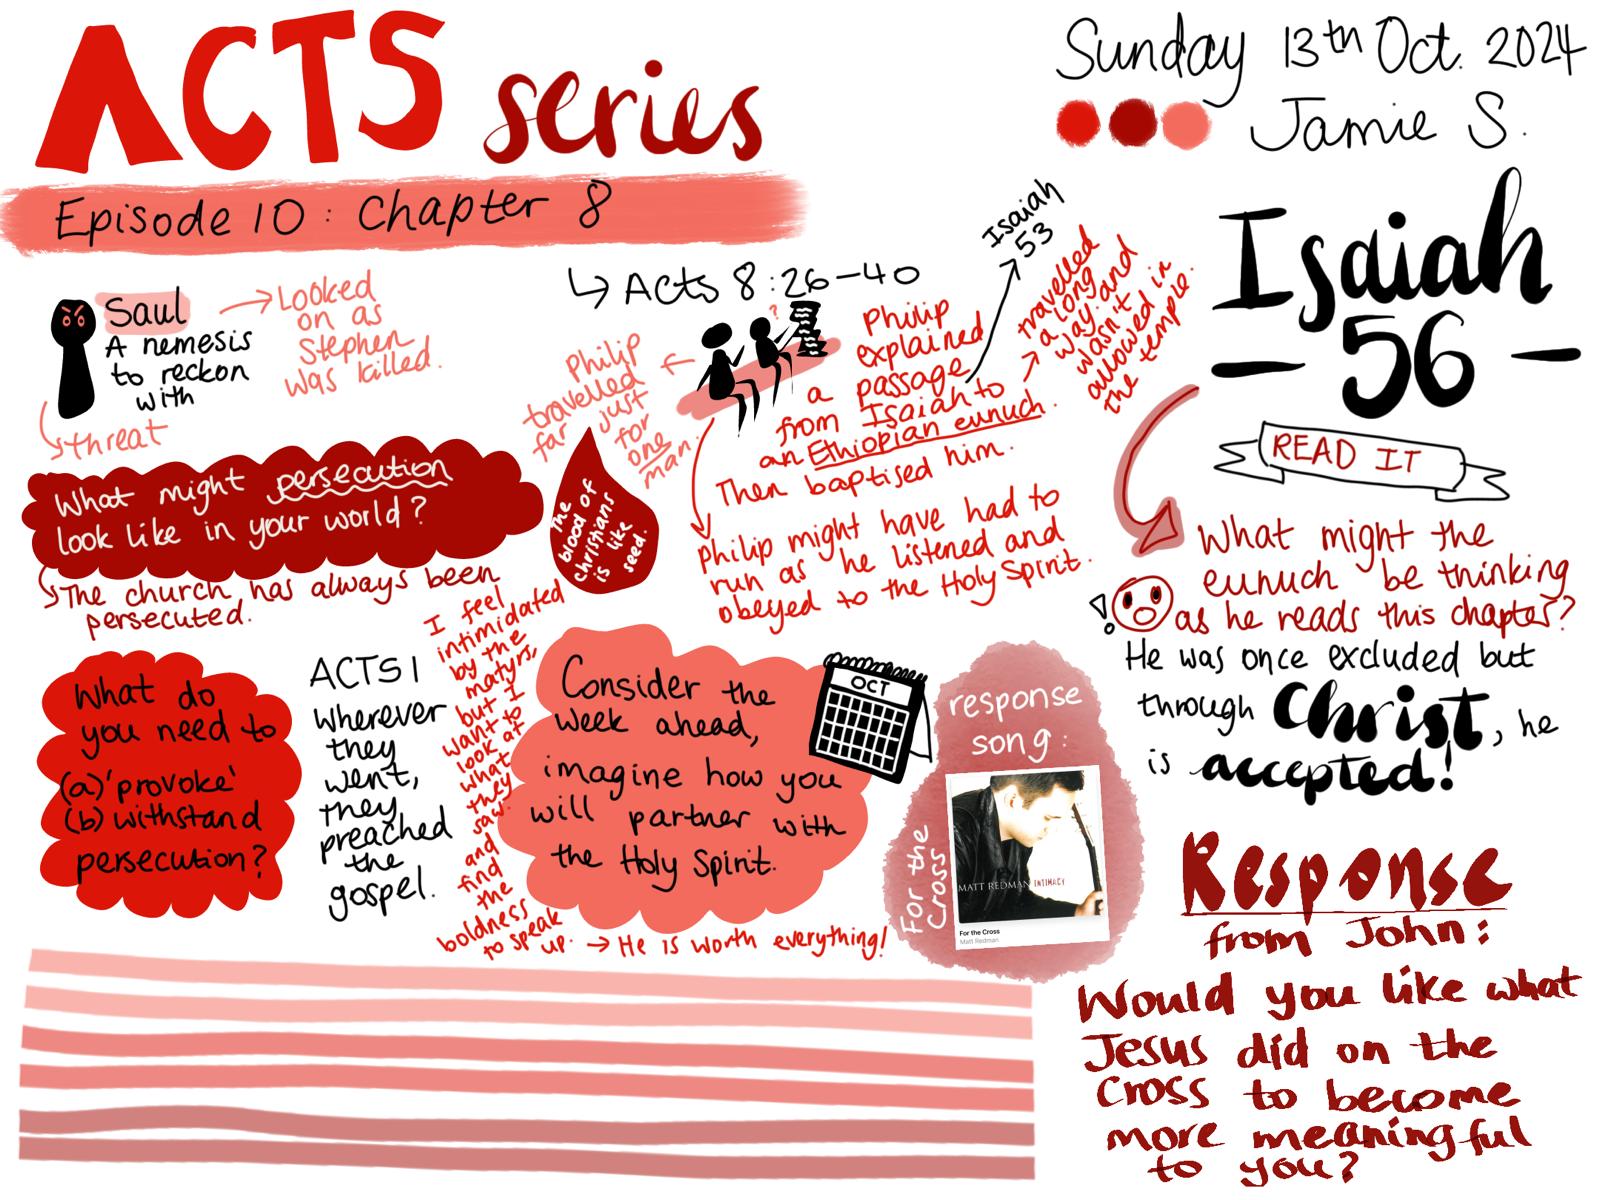 ACTS series
Episode 10: Chapter 8
Sunday 13th Oct. 2024
Jamie S.
Saul
A nemesis
to reckon
with
→ Looked
on as
Stephen
was killed.
threat
What might persecution
look like in your world?
The church has always been
persecuted.
↳ Acts 8:26-40
Philip
travelled
far just
for
one
man.
?
Philip
explained
a passage
from Isaiah to
an Ethiopian eunuch.
Then baptised him.
Isaiah
53
travelled
a long
way and
wasn't
allowed in
the temple.
Philip might have had to
run as he listened and
obeyed to the Holy Spirit.
The
blood of
christians
is like
seed.
Isaiah
- 56 -
READ IT
What might the
eunuch be thinking
as he reads this chapter?
!
He was once excluded but
through Christ, he
is accepted!
What do
you need to
(a) 'provoke'
(b) withstand
persecution?
ACTS 1
wherever
they
went,
they
preached
the
gospel.
I feel
intimidated
by the
matyrs,
but I
want to
look at
what
they
saw
and
find
the
boldness
to speak
up. → He is worth everything!
Consider the
week ahead,
imagine how you
will partner with
the Holy Spirit.
OCT
response
song:
For the
Cross
MATT REDMAN INTIMACY
For the Cross
Matt Redman
Response
from John:
Would you like what
Jesus did on the
Cross to become
more meaningful
to you?